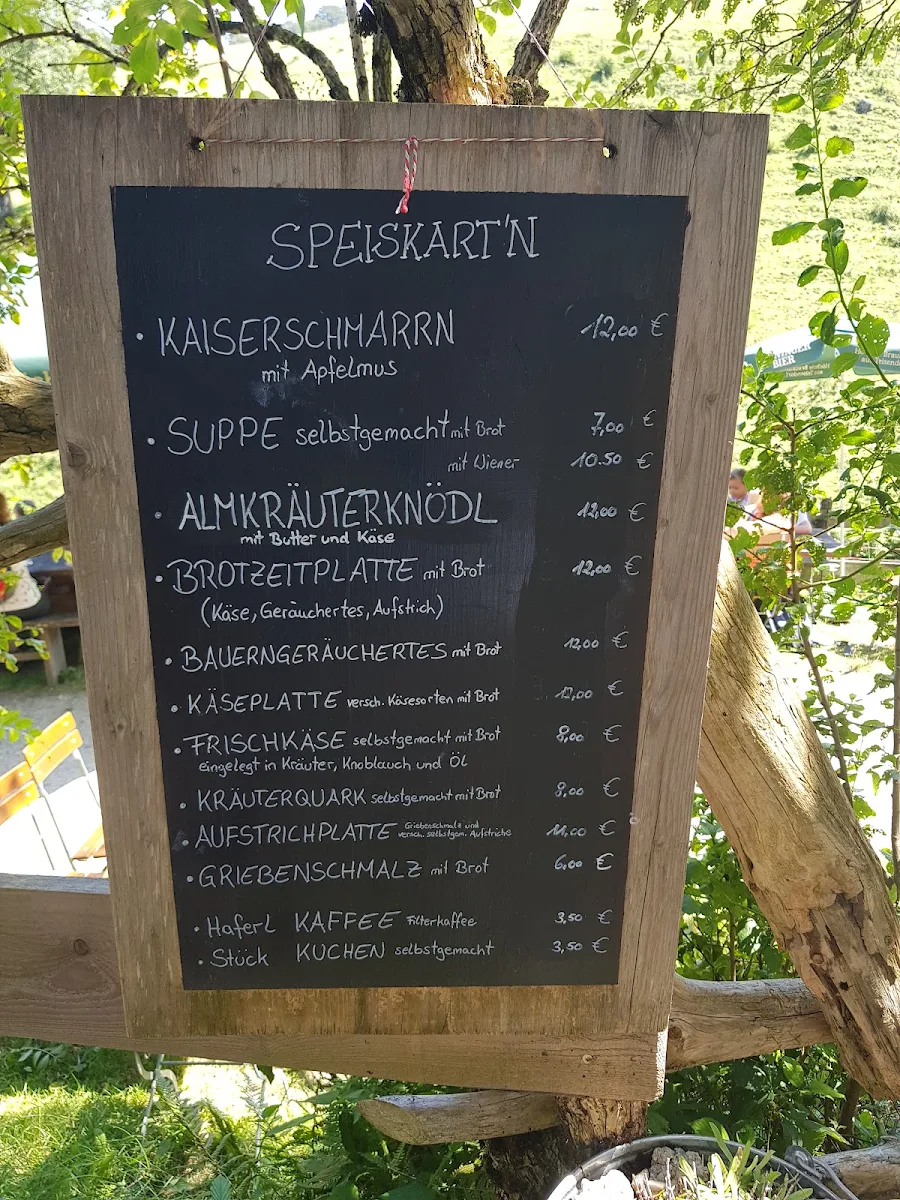 SPEISKART'N
• KAISERSCHMARRN 12,00 €
mit Apfelmus
• SUPPE selbstgemacht mit Brot 7,00 €
mit Wiener 10.50 €
• ALMKRÄUTERKNÖDL 12,00 €
mit Butter und Käse
• BROTZEITPLATTE mit Brot 12,00 €
(Käse, Geräuchertes, Aufstrich)
• BAUERNGERÄUCHERTES mit Brot 12,00 €
• KÄSEPLATTE versch. Käsesorten mit Brot 12,00 €
• FRISCHKÄSE selbstgemacht mit Brot 8,00 €
eingelegt in Kräuter, Knoblauch und Öl
• KRÄUTERQUARK selbstgemacht mit Brot 8,00 €
• AUFSTRICHPLATTE Griebenschmalz und
versch. selbstgem. Aufstriche 11,00 €
• GRIEBENSCHMALZ mit Brot 6,00 €
• Haferl KAFFEE Filterkaffee 3,50 €
• Stück KUCHEN selbstgemacht 3,50 €
BIER